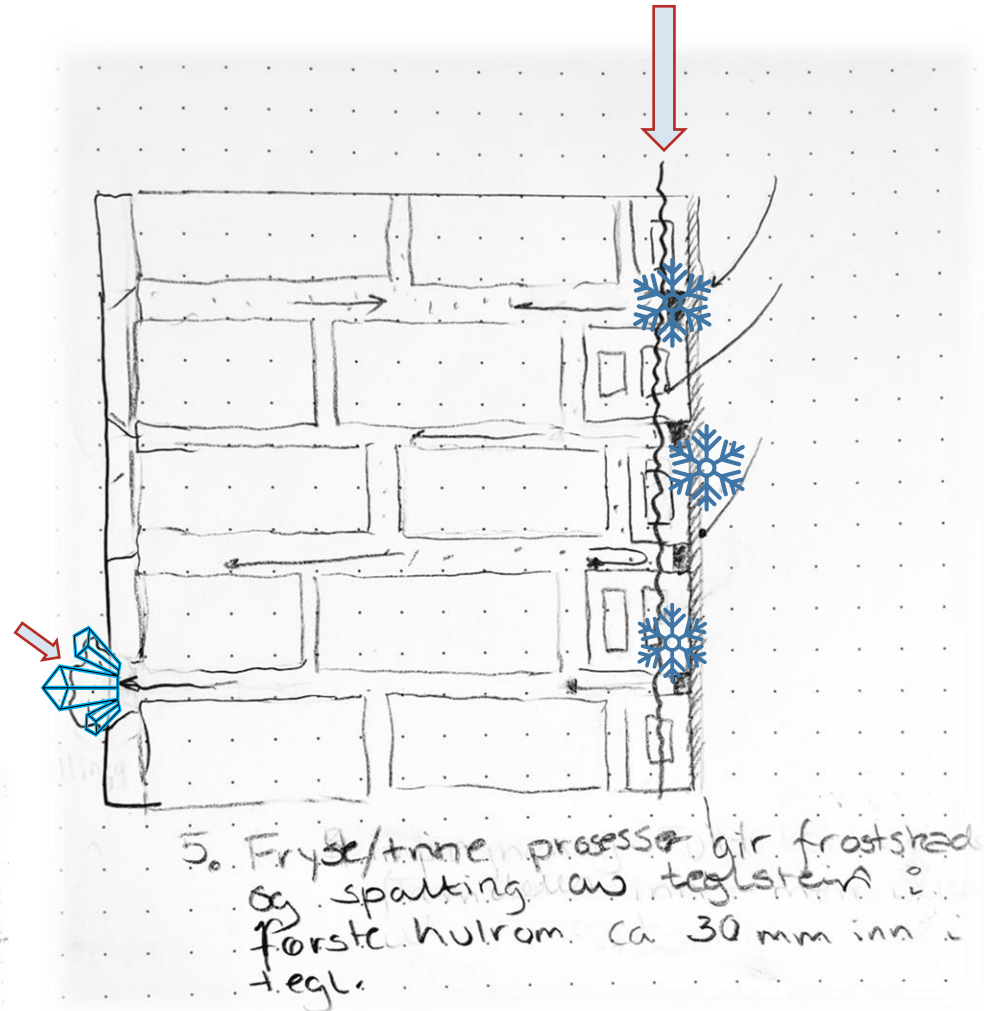 5. Fryse/tine prosesser gir frostskad
og spalting av teglstein i
første hulrom ca 30 mm inn i
tegl.